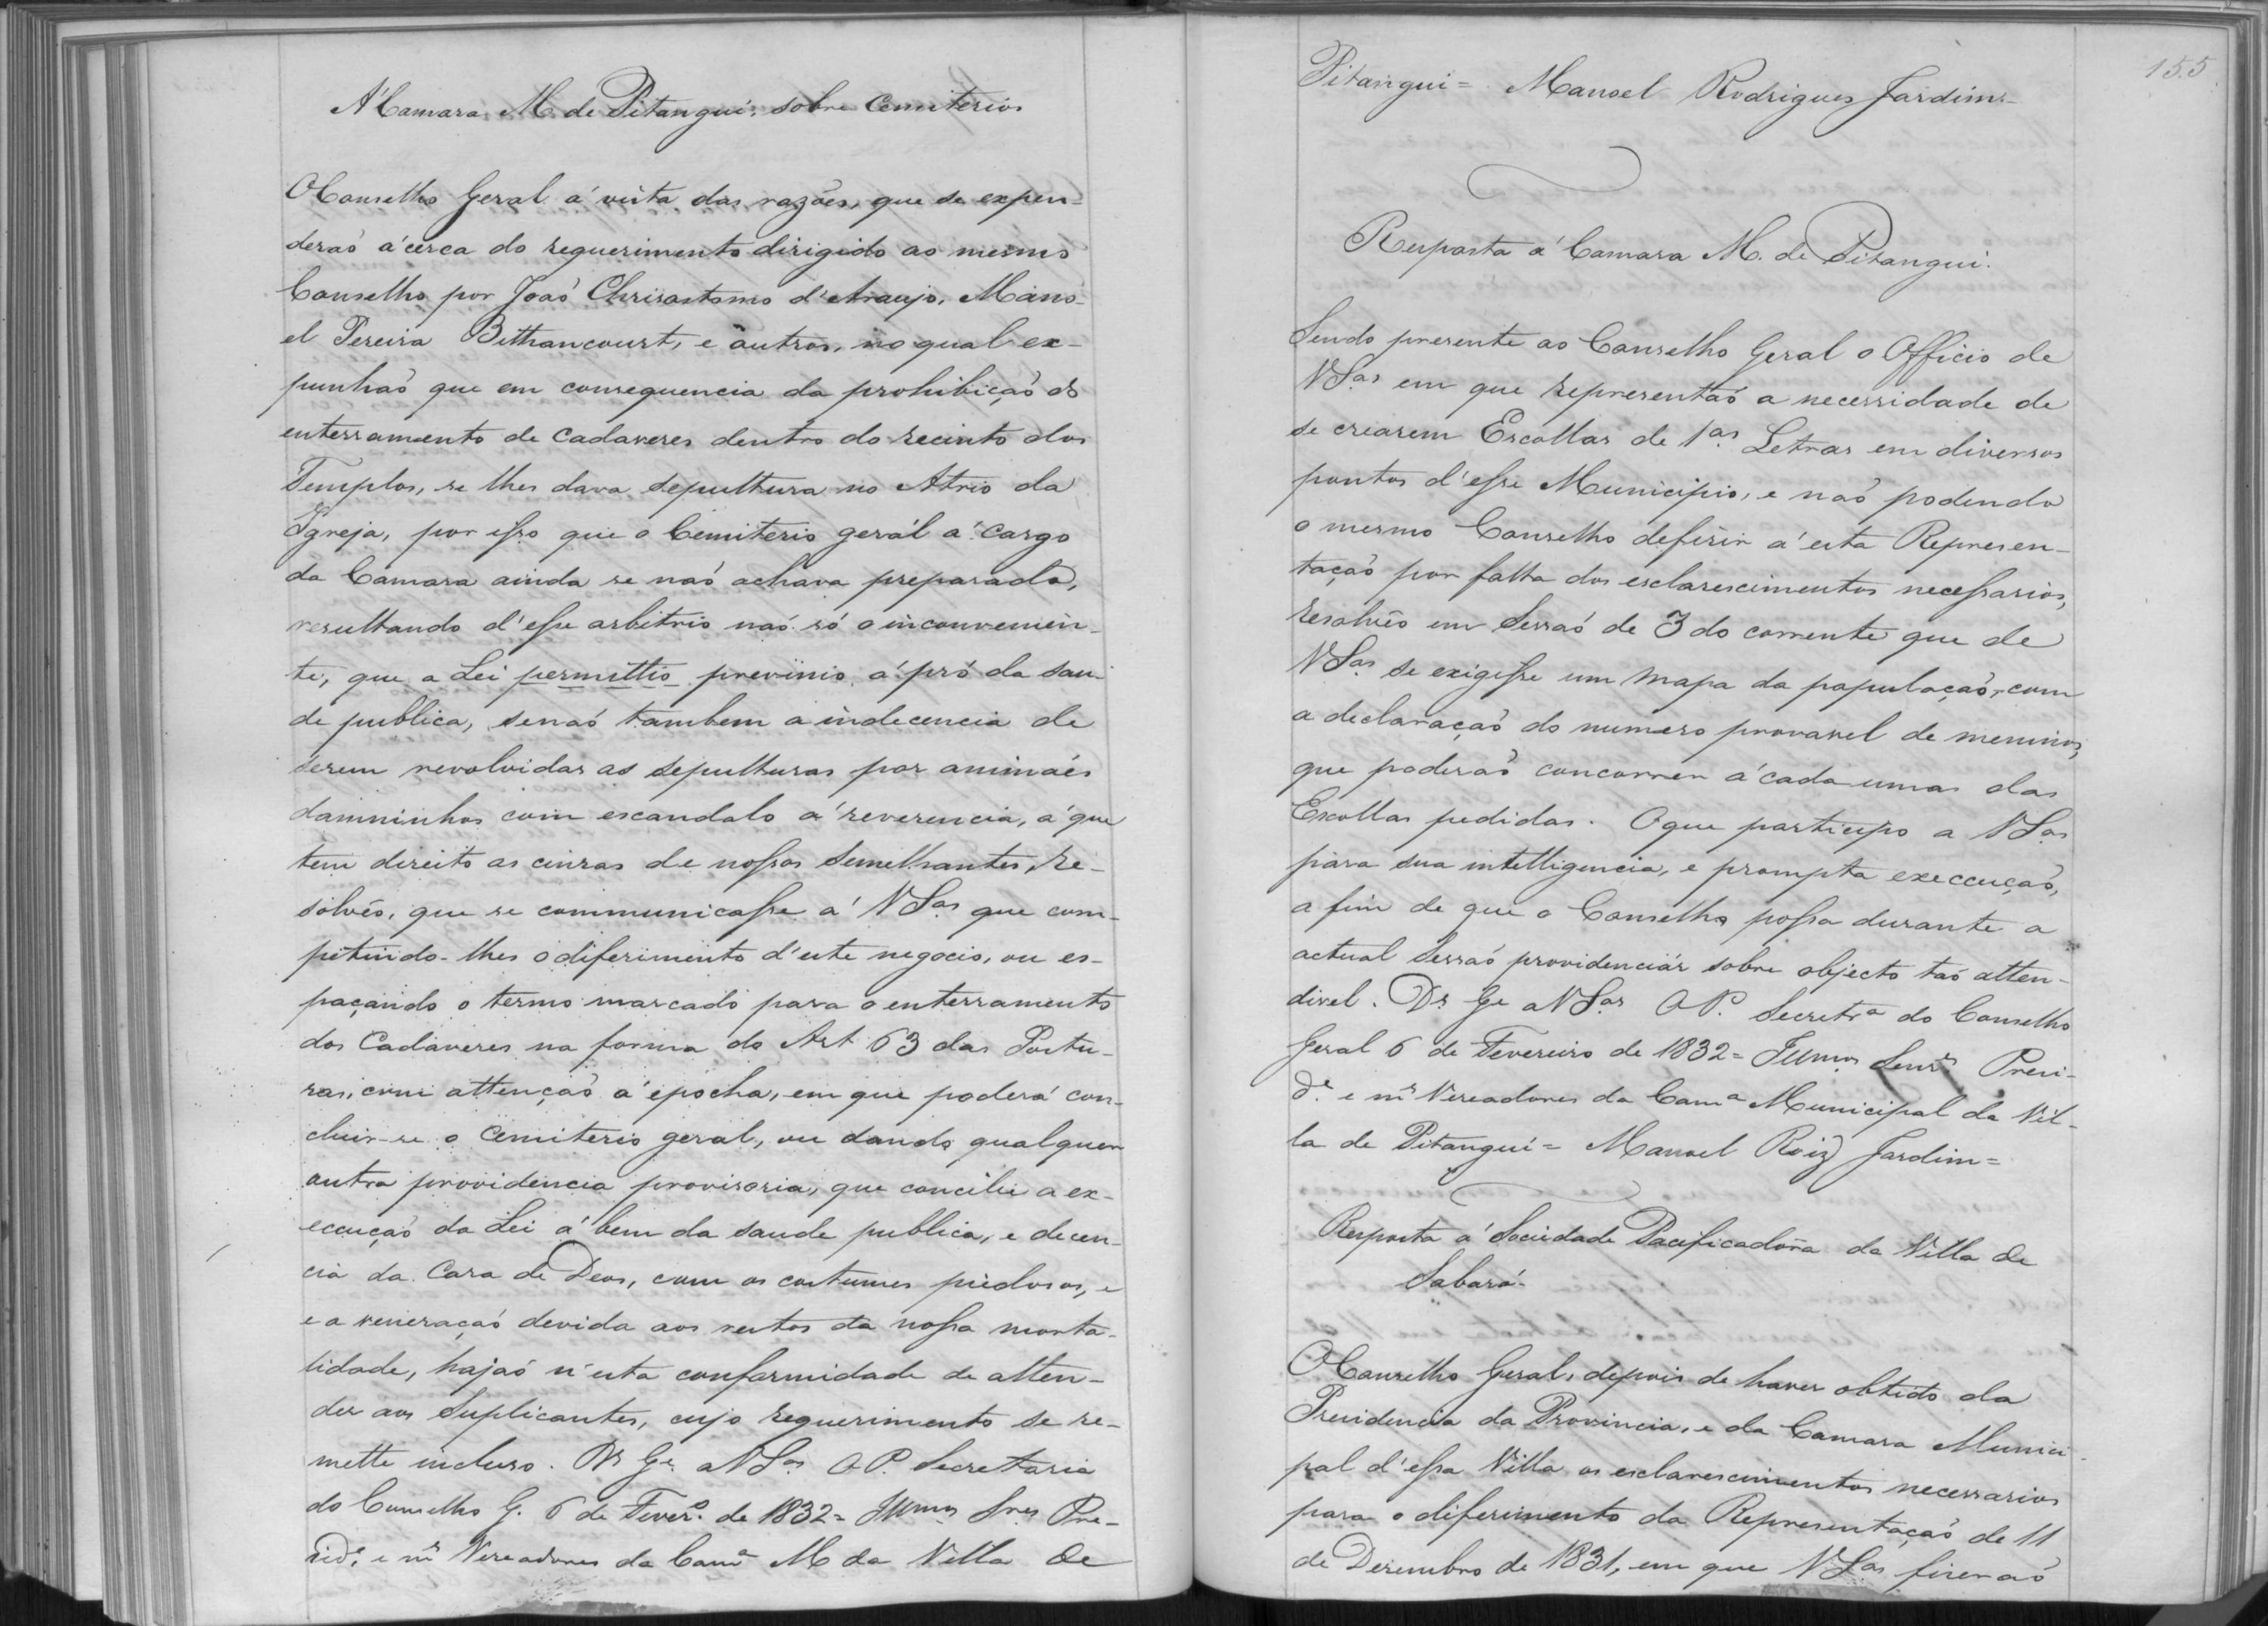 A' Camara M. de Pitangui; sobre Cemiterios
O Conselho Geral á vista das razões, que se expen-
deraõ á cerca do requerimento dirigido ao mesmo
Conselho por Joaõ Chrisostomo d'Araujo, Mano-
el Pereira Bithancourt, e outros, no qual ex-
punhaõ que em consequencia da prohibiçaõ do
enterramento de Cadaveres dentro do recinto dos
Templos, se lhes dava sepultura no Atrio da
Igreja, por isso que o Cemiterio geral á cargo
da Camara ainda se naõ achava preparado,
resultando d'esse arbitrio naõ só o inconvenien-
te, que a Lei permittio previnio á pró da sau-
de publica, senaõ tambem a indecencia de
serem revolvidas as sepulturas por animáes
damninhos com escandalo á reverencia, á que
tem direito as cinzas de nossos Semelhantes, re-
solvêo, que se communicasse a' VSas que com-
petindo-lhes o diferimento d'este negocio, ou es-
paçando o termo marcado para o enterramento
dos Cadaveres na forma do Art 63 das Postu-
ras, com attençaõ á epocha, em que poderá con-
cluir-se o Cemiterio geral, ou dando qualquer
outra providencia provisoria, que concilie a ex-
ecuçaõ da Lei á bem da saude publica, e decen-
cia da Casa de Deos, com os costumes piedosos, e
e a veneraçaõ devida aos restos da nossa morta-
lidade, hajaõ n'esta conformidade de atten-
der aos Suplicantes, cujo requerimento se re-
mette incluso. Ds Ge a VSas O P. Secretaria
do Conselho G. 6 de Fever.o de 1832 = Illmos Snres Pre-
sid.e e ms Vereadores da Cam.a M da Villa de
155
Pitangui = Manoel Rodrigues Jardim =
Resposta á Camara M. de Pitangui.
Sendo presente ao Conselho Geral o Officio de
VSas em que representaõ a necessidade de
se crearem Escollas de 1as Letras em diversos
pontos d'esse Municipio, e naõ podendo
o mesmo Conselho deferir á esta Represen-
taçaõ por falta dos esclarescimentos necessarios,
resolvêo em Sessaõ de 3 do corrente que de
VSas se exigisse um mapa da populaçaõ, com
a declaraçaõ do numero provavel de meninos,
que poderaõ concorrer á cada uma das
Escollas pedidas. O que participo a VSas
para sua intelligencia, e prompta execcuçaõ,
a fim de que o Conselho possa durante a
actual Sessaõ providenciar sobre objecto taõ atten-
divel. Ds Ge a VSas O P. Secretr.a do Conselho
Geral 6 de Fevereiro de 1832 = Illmos Senrs Presi-
d.e e ms Vereadores da Cam.a Municipal da Vil-
la de Pitangui = Manoel Roiz Jardim =
Resposta á Sociedade Pacificadora da Villa de
Sabará.
O Conselho Geral, depois de haver obtido da
Presidencia da Provincia, e da Camara Munici-
pal d'essa Villa os esclarescimentos necessarios
para o diferimento da Representaçaõ de 11
de Desembro de 1831, em que VSas fizeraõ